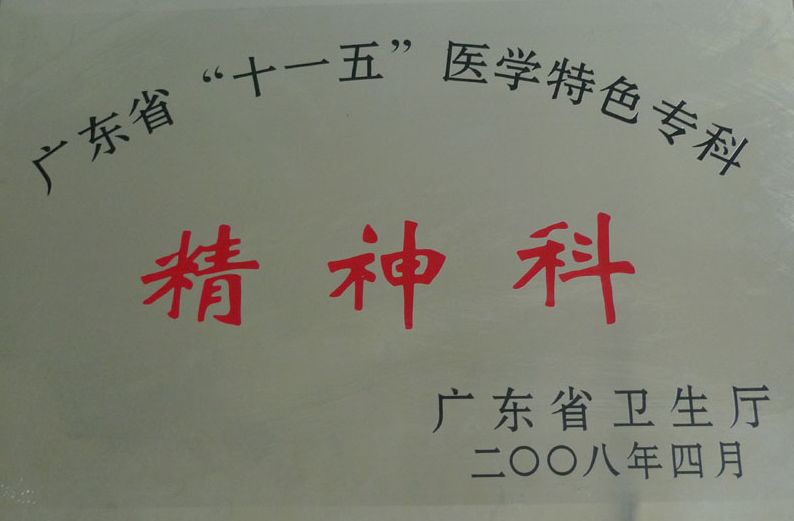 广东省“十一五”医学特色专科
精神科
广东省卫生厅
二〇〇八年四月